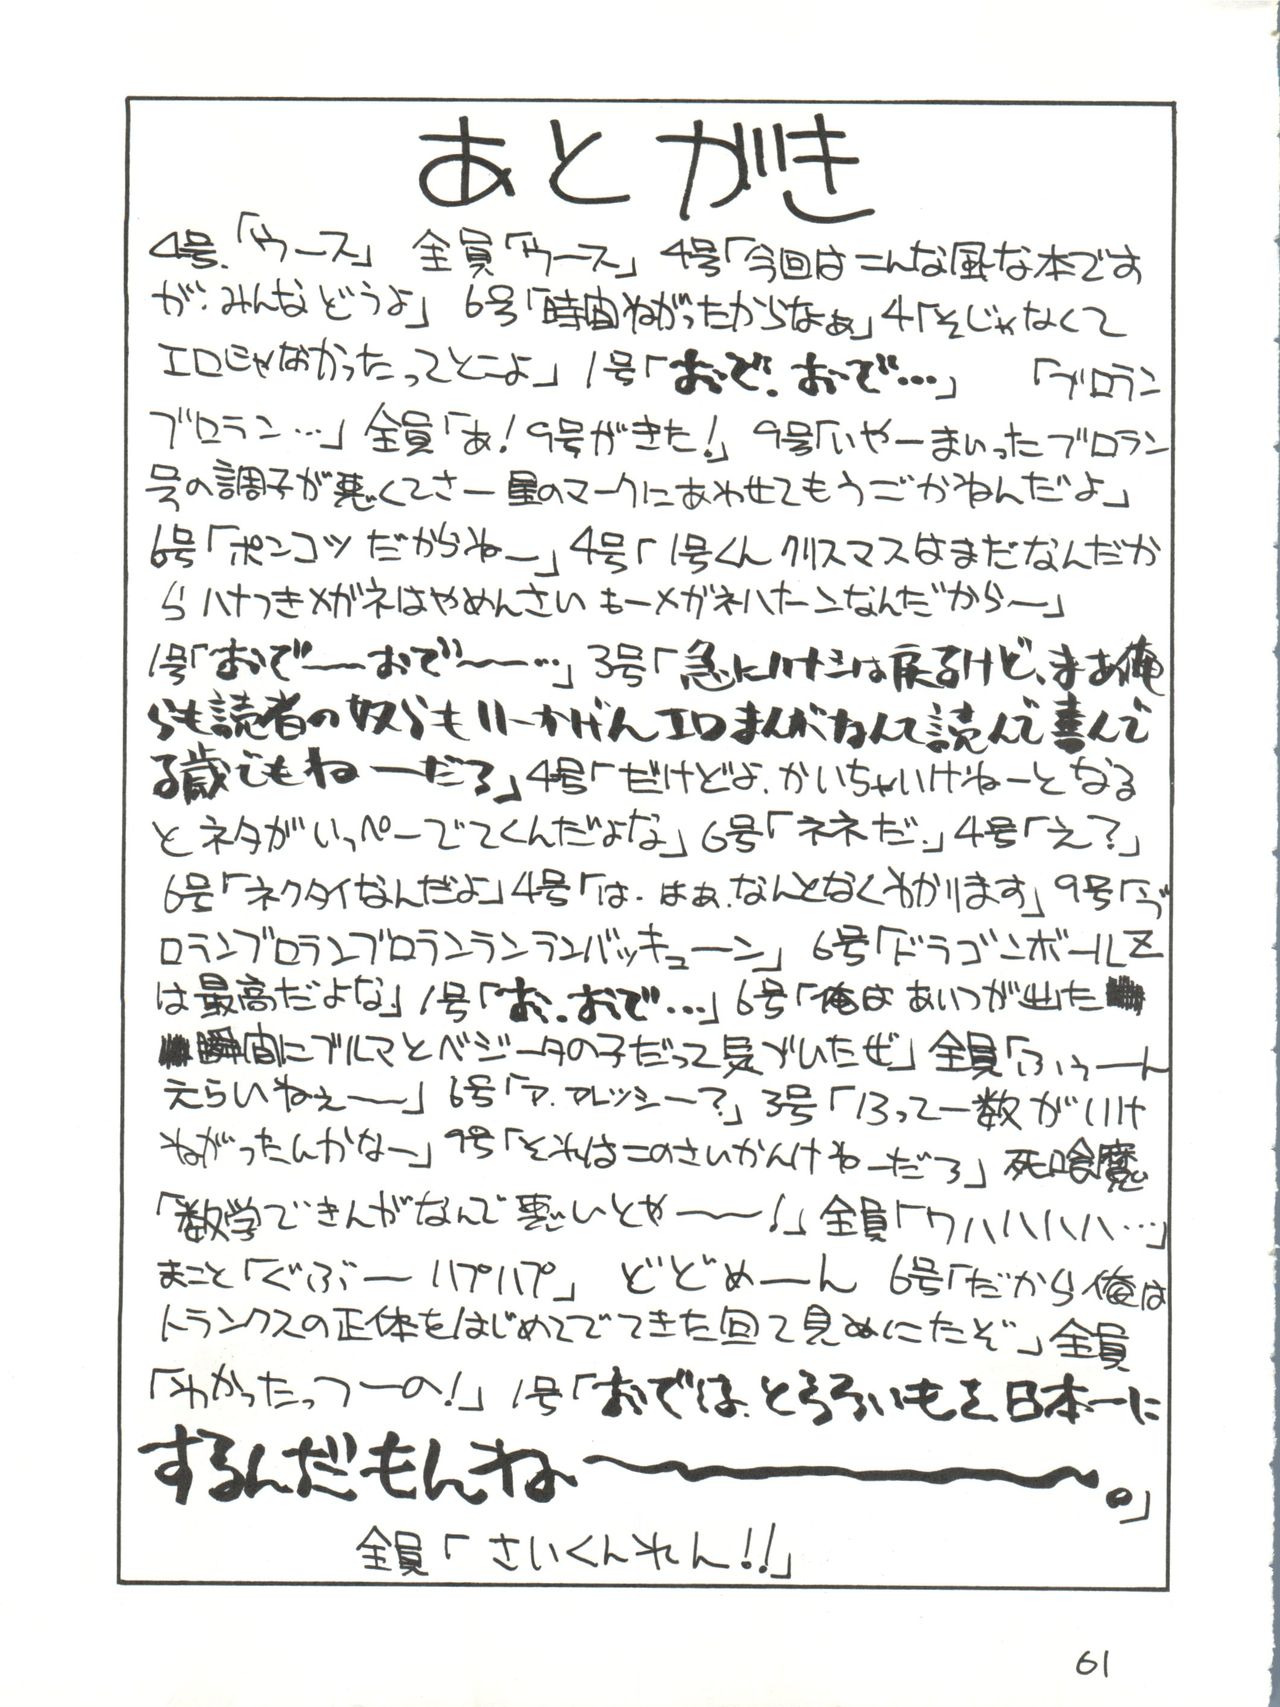 あとがき
4号「ウース」 全員「ウース」 4号「今回はこんな風な本です
が、みんなどうよ」 6号「時間ねがったからなぁ」4「そじゃなくて
エロじゃなかったってとこよ」 1号「おで、おで…」 「ブロラン
ブロラン…」 全員「あ!9号がきた!」 9号「いやーまいったブロラン
号の調子が悪くてさー星のマークにあわせてもうごかねんだよ」
6号「ポンコツだからねー」 4号「1号くんクリスマスはまだなんだか
らハナつきメガネはやめんさい もーメガネハナーンなんだから〜」
1号「おで〜〜おで〜〜…」 3号「急にハナシは戻るけど、まあ俺
らも読者の奴らもいーかげんエロまんがなんて読んで喜んで
る歳でもねーだろ」4号「だけどよ、かいちゃいけねーとなる
とネタがいっぺーでてくんだよな」 6号「ネネだ。」 4号「え?」
6号「ネクタイなんだよ」 4号「は、はぁ、なんとなくわかります」 9号「ブ
ロランブロランブロランランランバッキューン」 6号「ドラゴンボールZ
は最高だよな」 1号「お、おで…」 6号「俺はあいつが出た
瞬間にブルマとベジータの子だって気づいたぜ」 全員「ふぅーん
えらいねぇ〜〜」 6号「ア、アレッシー?」 3号「13って一数がいけ
ねがったんかなー」 9号「それはこのさいかんけねーだろ」 死喰魔
「数学できんがなんで悪いとや〜〜!」 全員「ワハハハハハ…」
まこと「ぐぶーハプハプ」 どどめーん 6号「だから俺は
トランクスの正体をはじめてでてきた回で見ぬいたぞ」 全員
「わかったっつーの!」 1号「おでは、とろろいもを日本一に
するんだもんね〜〜〜。」
全員「さいくんれん!!」
61